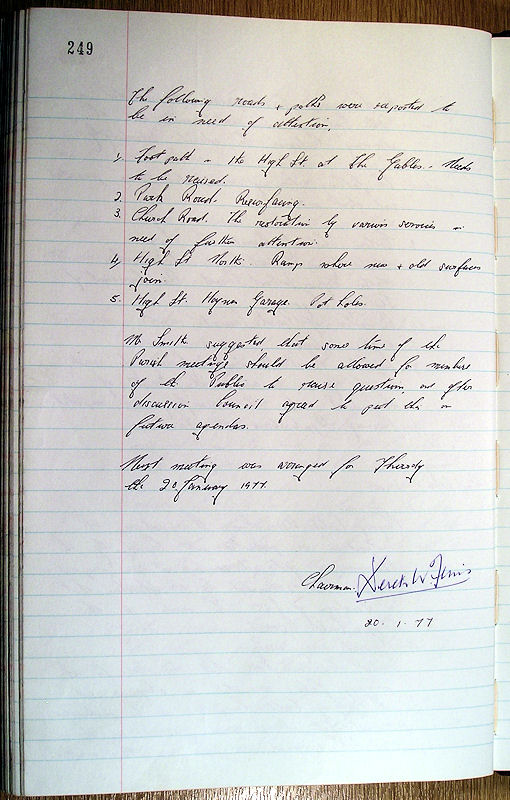 249
The following roads + paths were reported to
be in need of attention.
1, Foot path in the High St. at The Gables. Needs
to be raised.
2. Park Road. Resurfacing.
3. Church Road. The restoration by various services in
need of further attention.
4, High St North. Ramp where new + old surfaces
join.
5. High St. Haynes Garage. Pot holes.
Mr Smith suggested that some time of the
Parish meetings should be allowed for members
of the Public to raise question, and after
discussion Council agreed to put this on
future agendas.
Next meeting was arranged for Thursday
the 20 January 1977.
Chairman. Derek W.
20. 1. 77